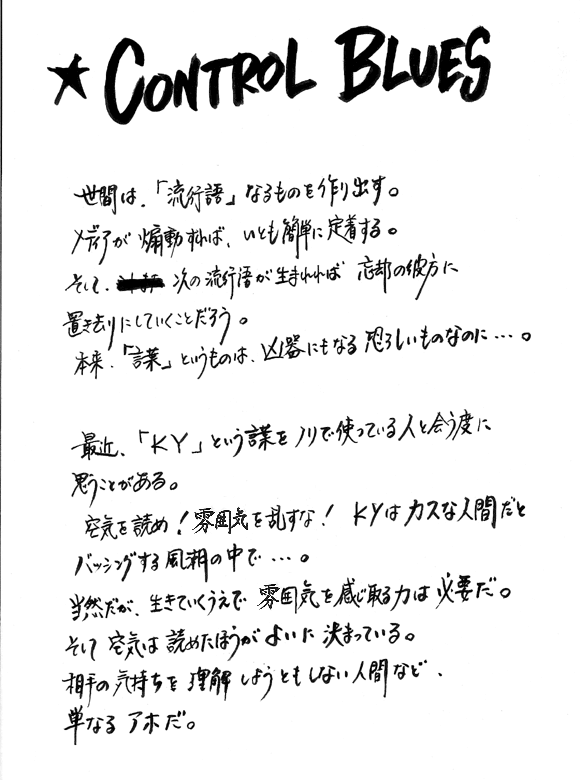 ★ CONTROL BLUES
世間は、「流行語」なるものを作り出す。
メディアが煽動すれば、いとも簡単に定着する。
そして、次の流行語が生まれれば 忘却の彼方に
置き去りにしていくことだろう。
本来、「言葉」というものは、凶器にもなる恐ろしいものなのに…。
最近、「KY」という言葉をノリで使っている人と会う度に
思うことがある。
空気を読め！雰囲気を乱すな！ KYはカスな人間だと
バッシングする風潮の中で…。
当然だが、生きていくうえで 雰囲気を感じ取る力は必要だ。
そして 空気は読めたほうがよいに決まっている。
相手の気持ちを理解しようともしない人間など、
単なるアホだ。